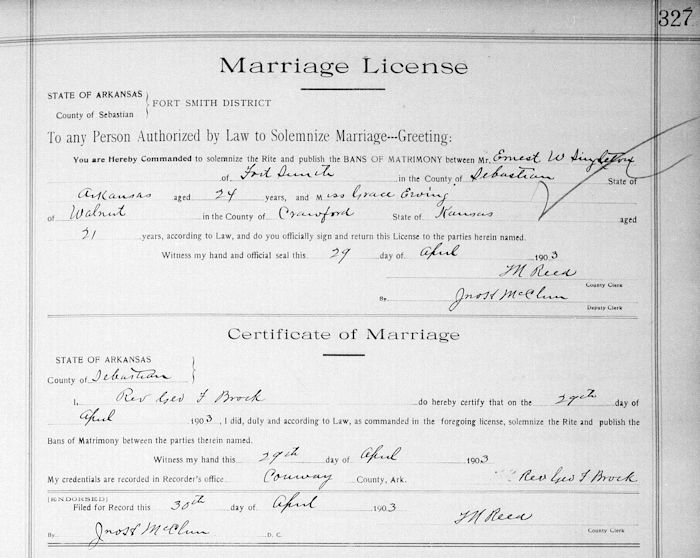 327
Marriage License
STATE OF ARKANSAS
County of Sebastian
FORT SMITH DISTRICT
To any Person Authorized by Law to Solemnize Marriage---Greeting:
You are Hereby Commanded to solemnize the Rite and publish the BANS OF MATRIMONY between Mr. Ernest W Singleton
of Fort Smith in the County of Sebastian State of
Arkansas aged 24 years, and Miss Grace Erving
of Walnut in the County of Crawford State of Kansas aged
21 years, according to Law, and do you officially sign and return this License to the parties herein named.
Witness my hand and official seal this 29 day of April 1903
FM Reed
County Clerk
By Jno H McClure
Deputy Clerk
Certificate of Marriage
STATE OF ARKANSAS
County of Sebastian
I, Rev Geo F Brock do hereby certify that on the 29th day of
April 1903, I did, duly and according to Law, as commanded in the foregoing license, solemnize the Rite and publish the
Bans of Matrimony between the parties therein named.
Witness my hand this 29th day of April 1903
My credentials are recorded in Recorder's office Conway County, Ark. Rev Geo F Brock
[ENDORSED]
Filed for Record this 30th day of April 1903 FM Reed
County Clerk
By Jno H McClure D. C.